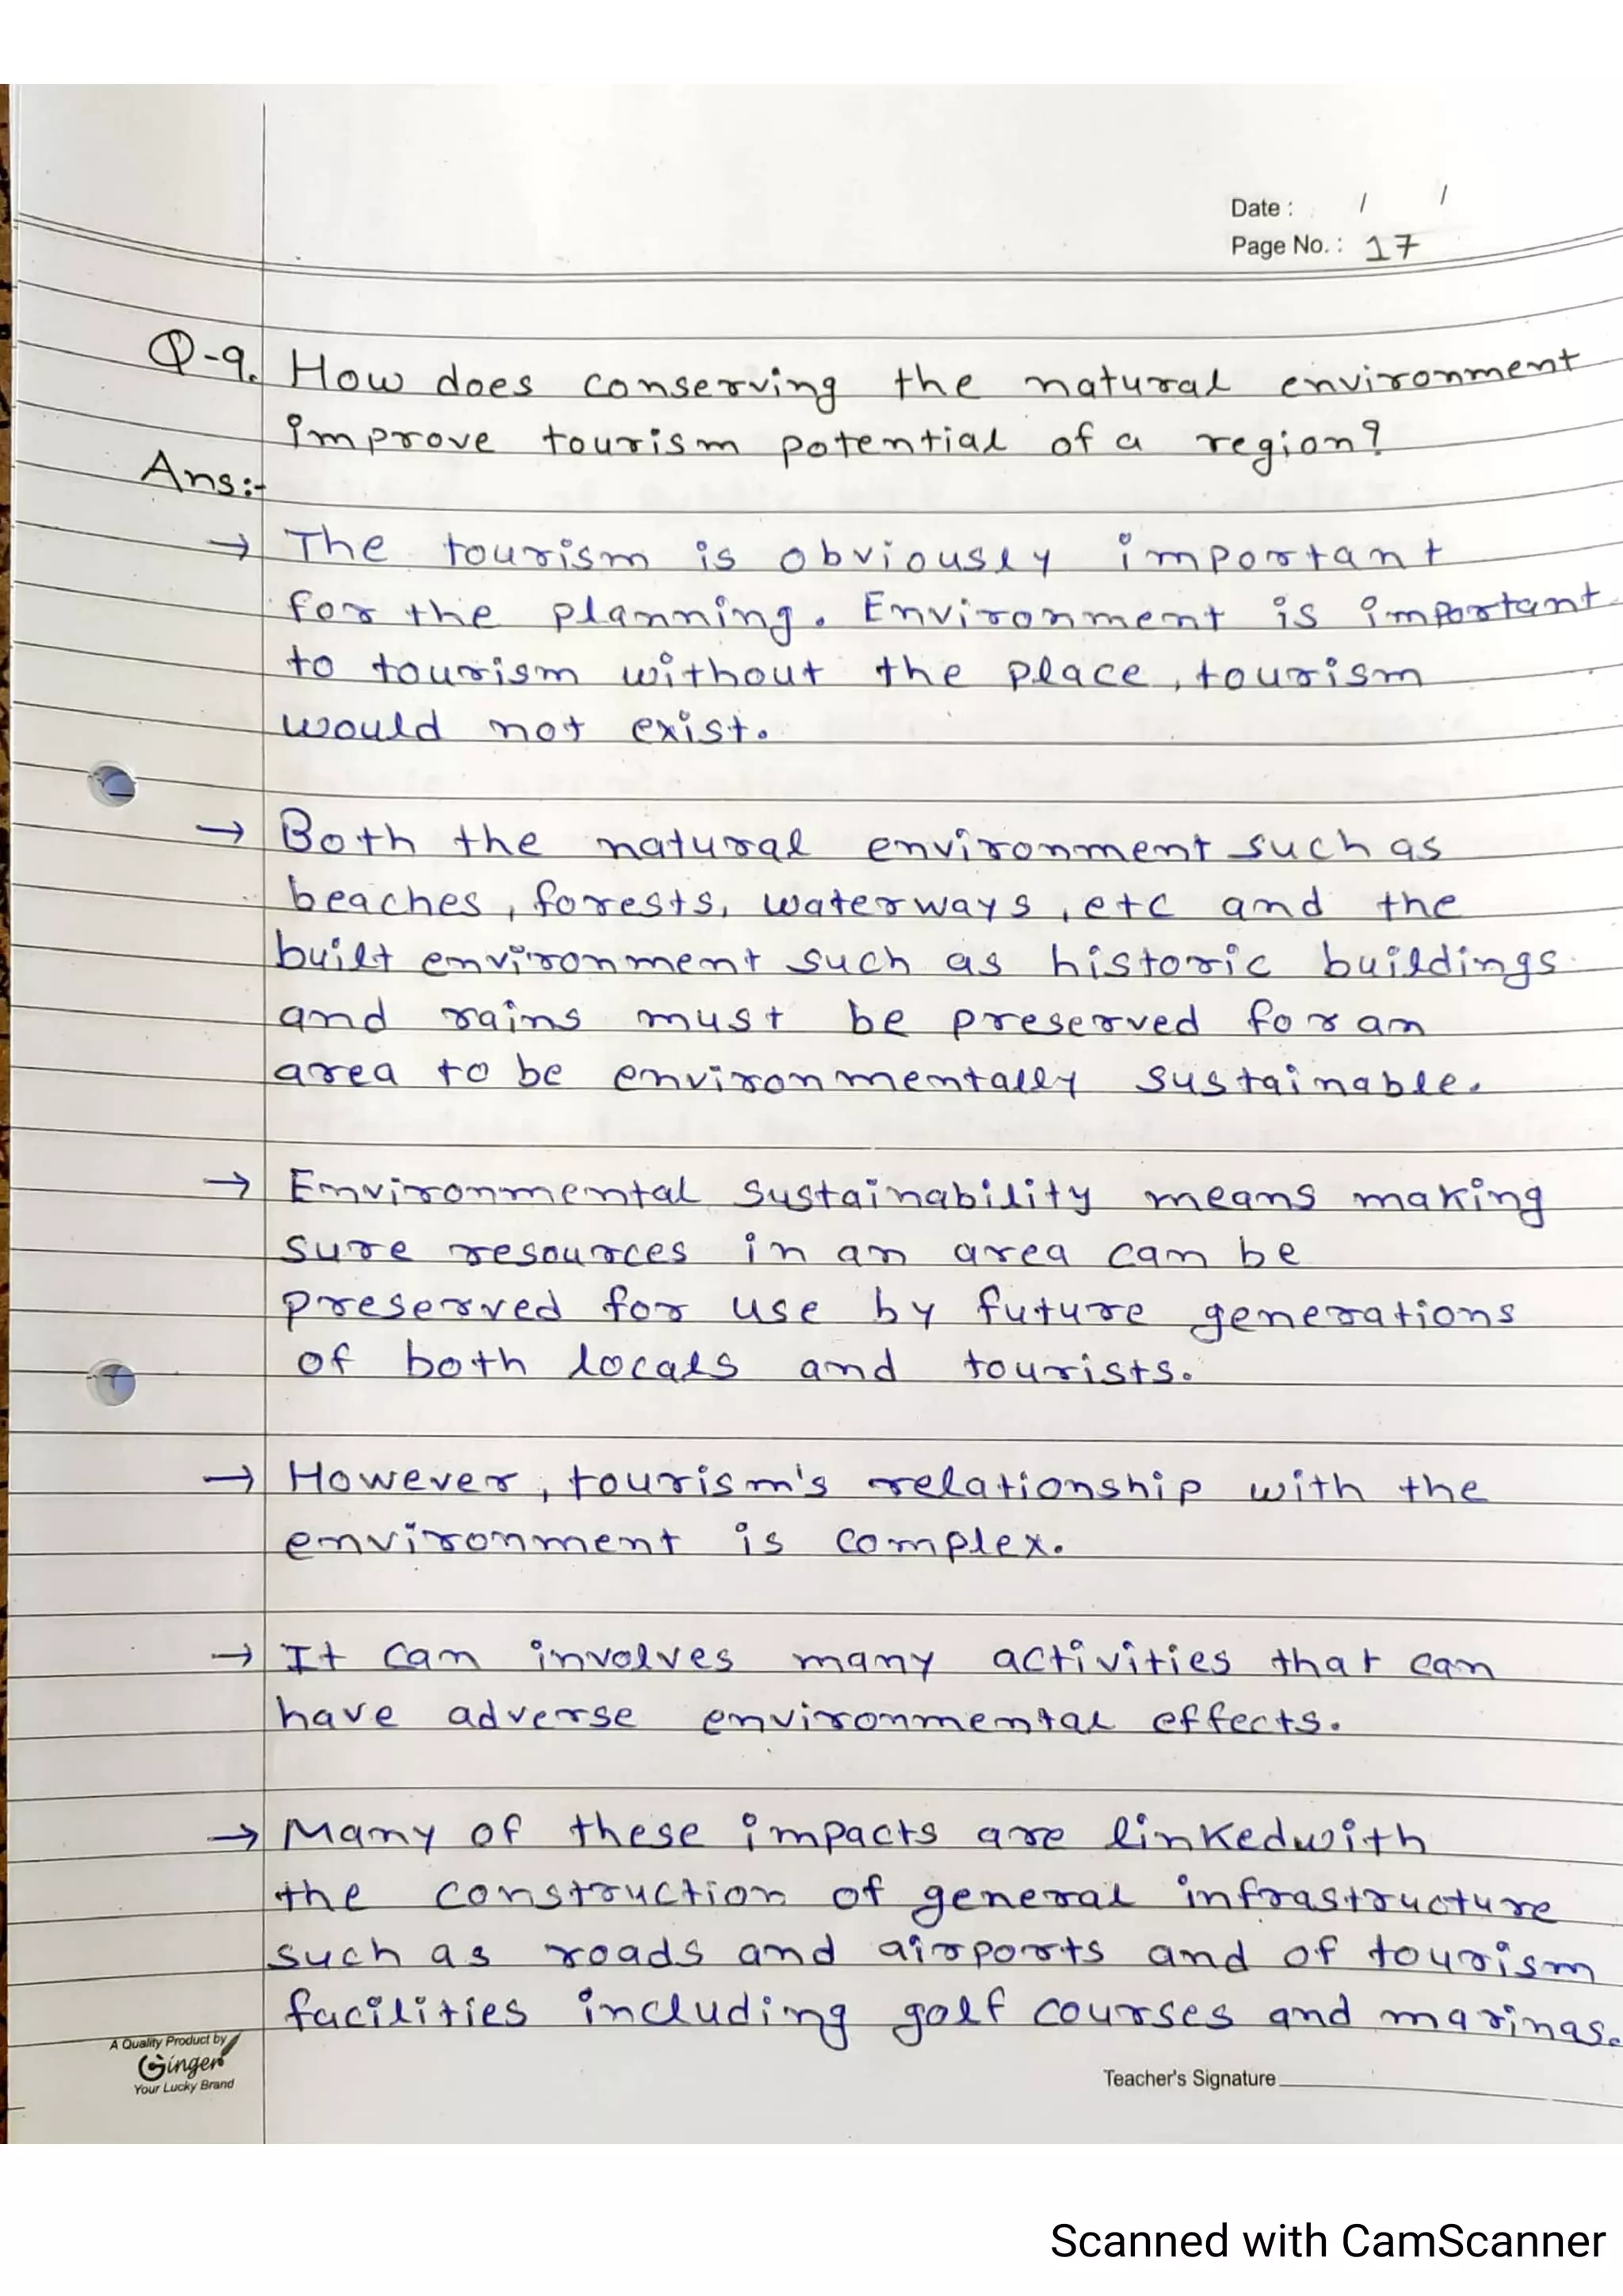 Date : / /
Page No. : 17
Q-9. How does conserving the natural environment
improve tourism potential of a region?
Ans:-
→ The tourism is obviously important
for the planning. Environment is important
to tourism without the place, tourism
would not exist.
→ Both the natural environment such as
beaches, forests, waterways, etc and the
built environment such as historic buildings
and rains must be preserved for an
area to be environmentally sustainable.
→ Environmental sustainability means making
sure resources in an area can be
preserved for use by future generations
of both locals and tourists.
→ However, tourism's relationship with the
environment is complex.
→ It can involves many activities that can
have adverse environmental effects.
→ Many of these impacts are linkedwith
the construction of general infrastructure
such as roads and airports and of tourism
facilities including golf courses and marinas.
A Quality Product by
Ginger
Your Lucky Brand
Teacher's Signature
Scanned with CamScanner